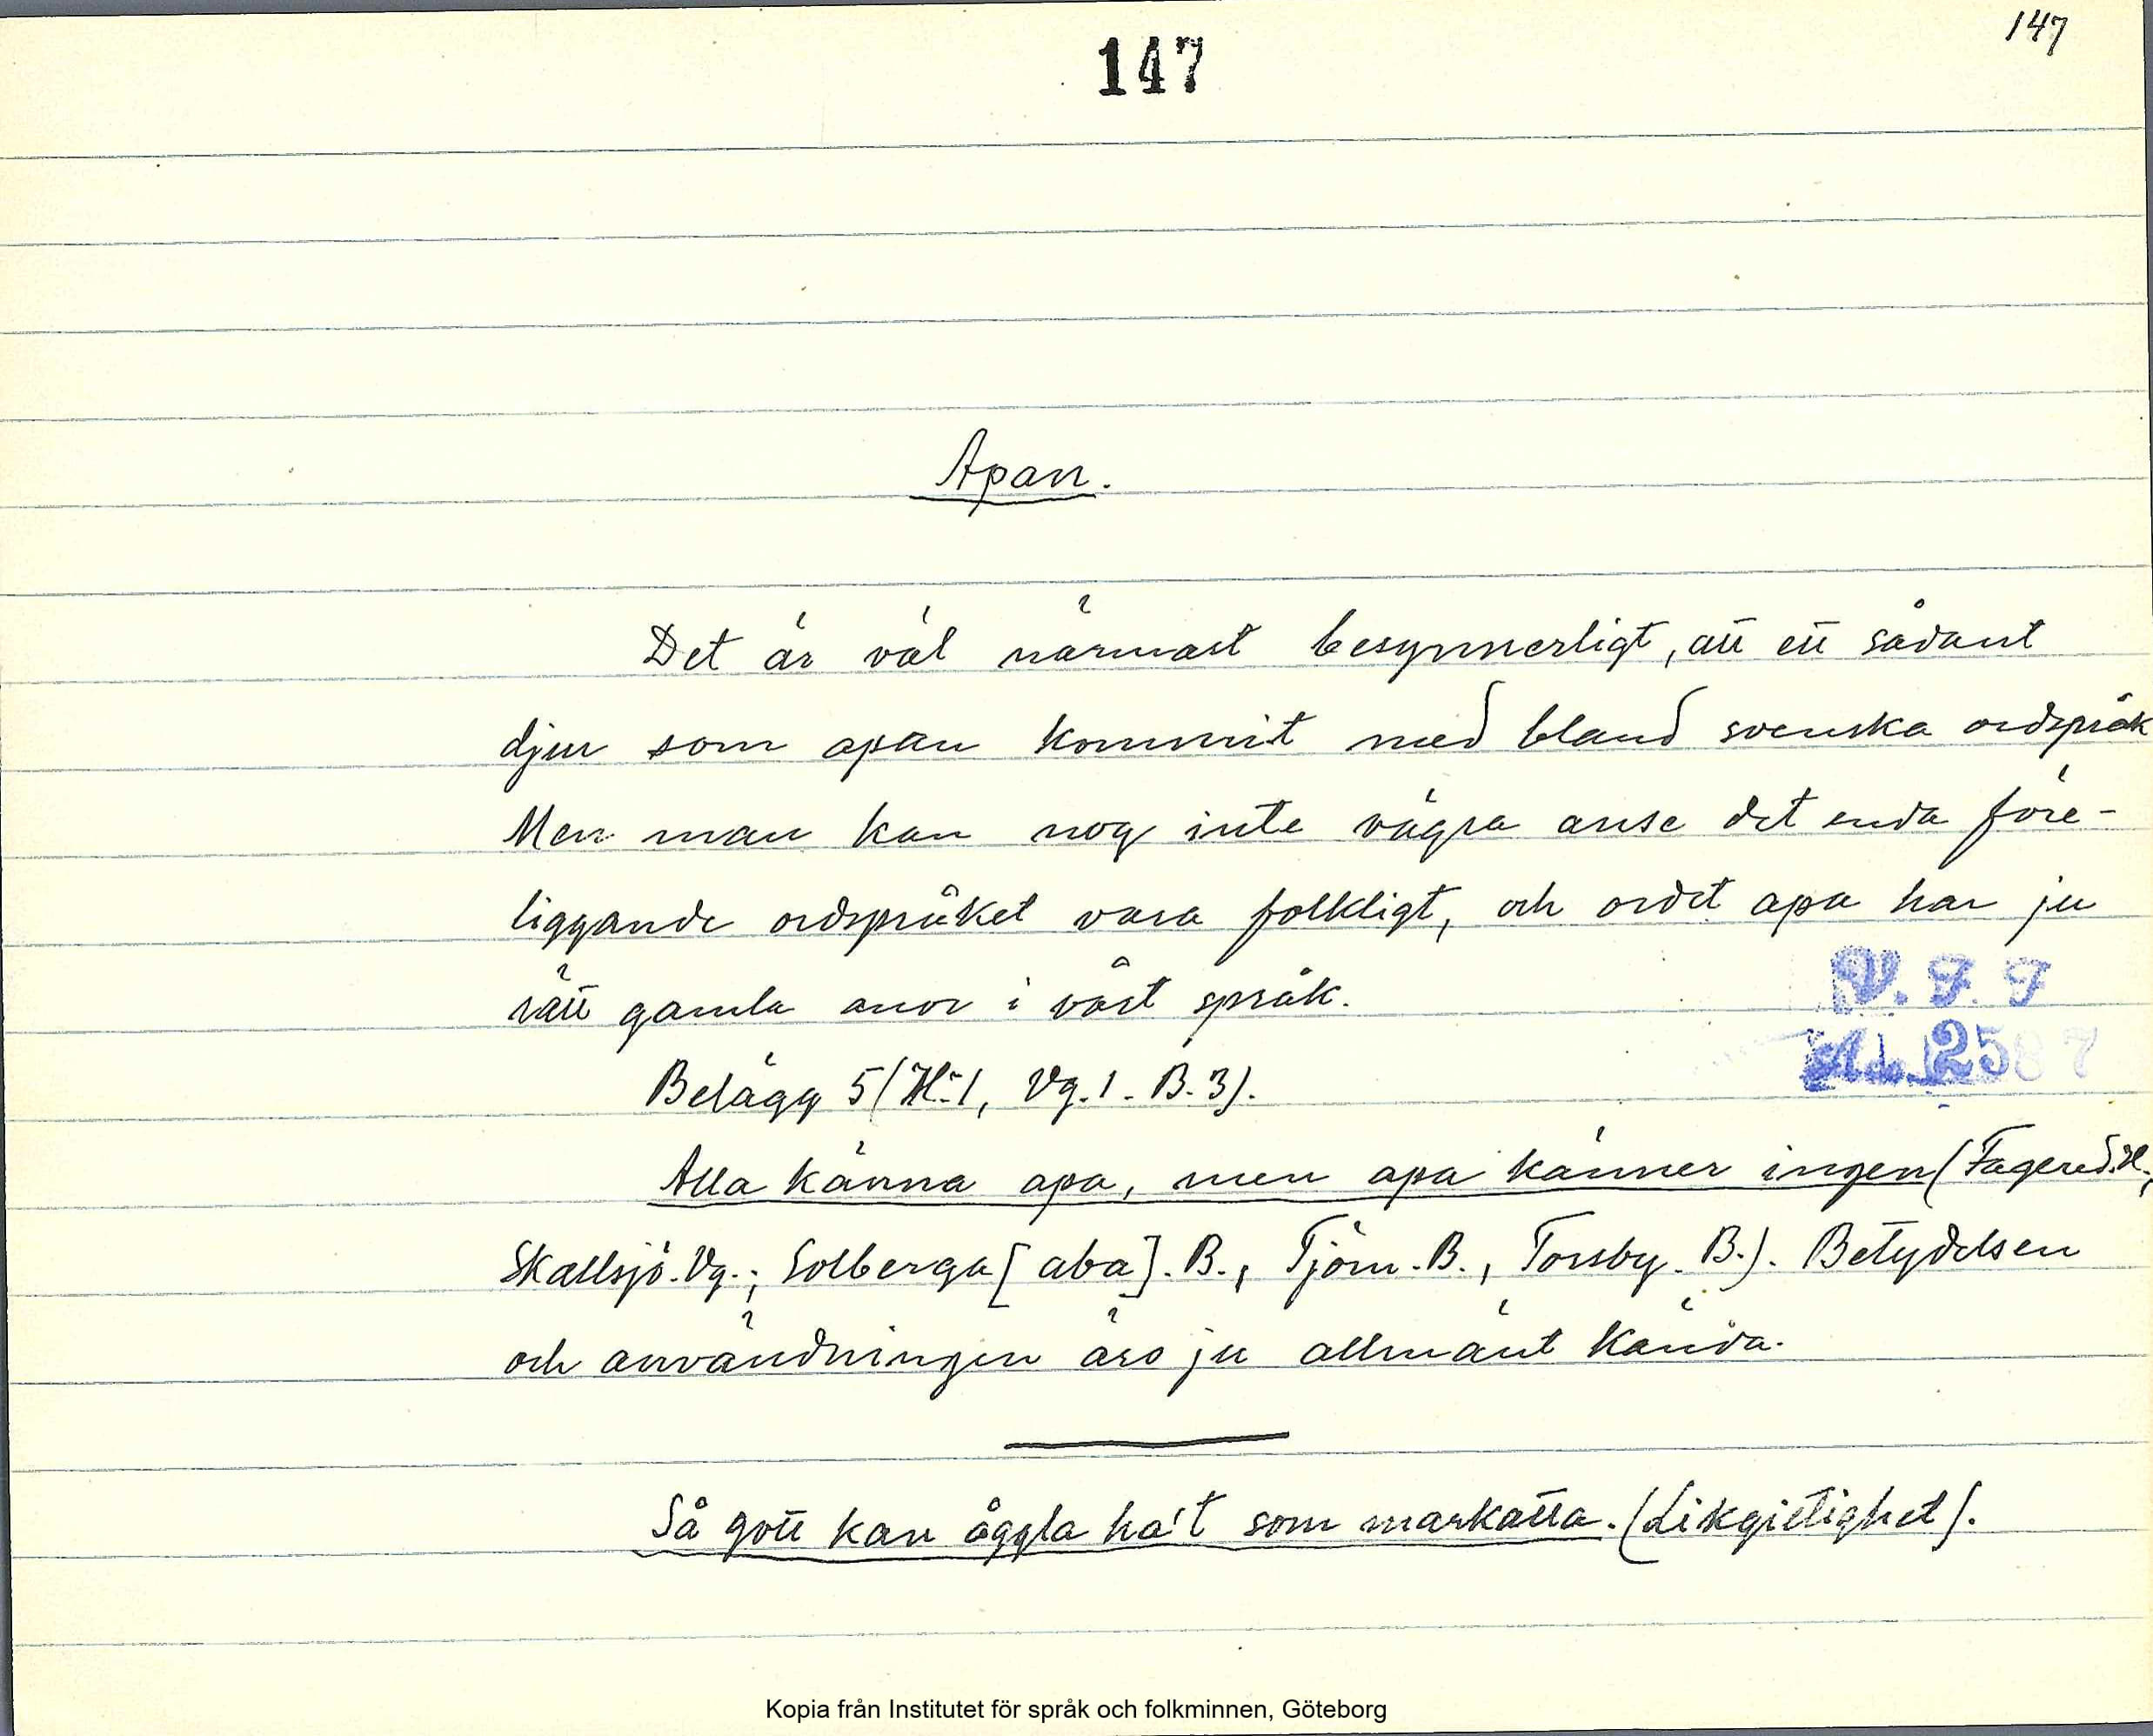 147
147
Apan.
Det är väl närmast besynnerligt, att ett sådant
djur som apan kommit med bland svenska ordspråk
Men man kan nog inte vägra anse det enda före-
liggande ordspråket vara folkligt, och ordet apa har ju
rätt gamla anor i vårt språk.
V. F. F
2587
Belägg 5 (H. 1, Vg. 1. B. 3).
Alla känna apa, men apa känner ingen (Fagered. H.,
Skallsjö. Vg.; Solberga [aba]. B., Tjörn. B., Torsby. B.). Betydelsen
och användningen äro ju allmänt kända.
Så gott kan åggla ha't som markatta. (Likgiltighet).
Kopia från Institutet för språk och folkminnen, Göteborg